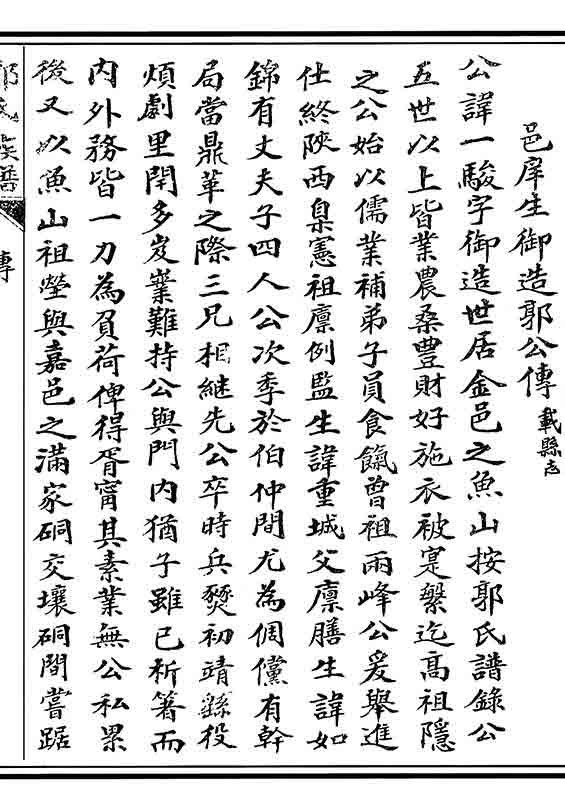 邑庠生御造郭公傳 載縣志
公諱一駿字御造世居金邑之魚山按郭氏譜錄公
五世以上皆業農桑豐財好施衣被寔繁迄高祖隱
之公始以儒業補弟子員食餼曾祖兩峰公爰舉進
仕終陝西臬憲祖廩例監生諱重城父廩膳生諱如
錦有丈夫子四人公次季於伯仲間尤為倜儻有幹
局當鼎革之際三兄相繼先公卒時兵燹初靖繇役
煩劇里閈多岌嶪難持公與門內猶子雖已析箸而
內外務皆一力為負荷俾得胥甯其素業無公私累
後又以魚山祖塋與嘉邑之滿家硐交壤硐間嘗踞
郭氏族譜
傳